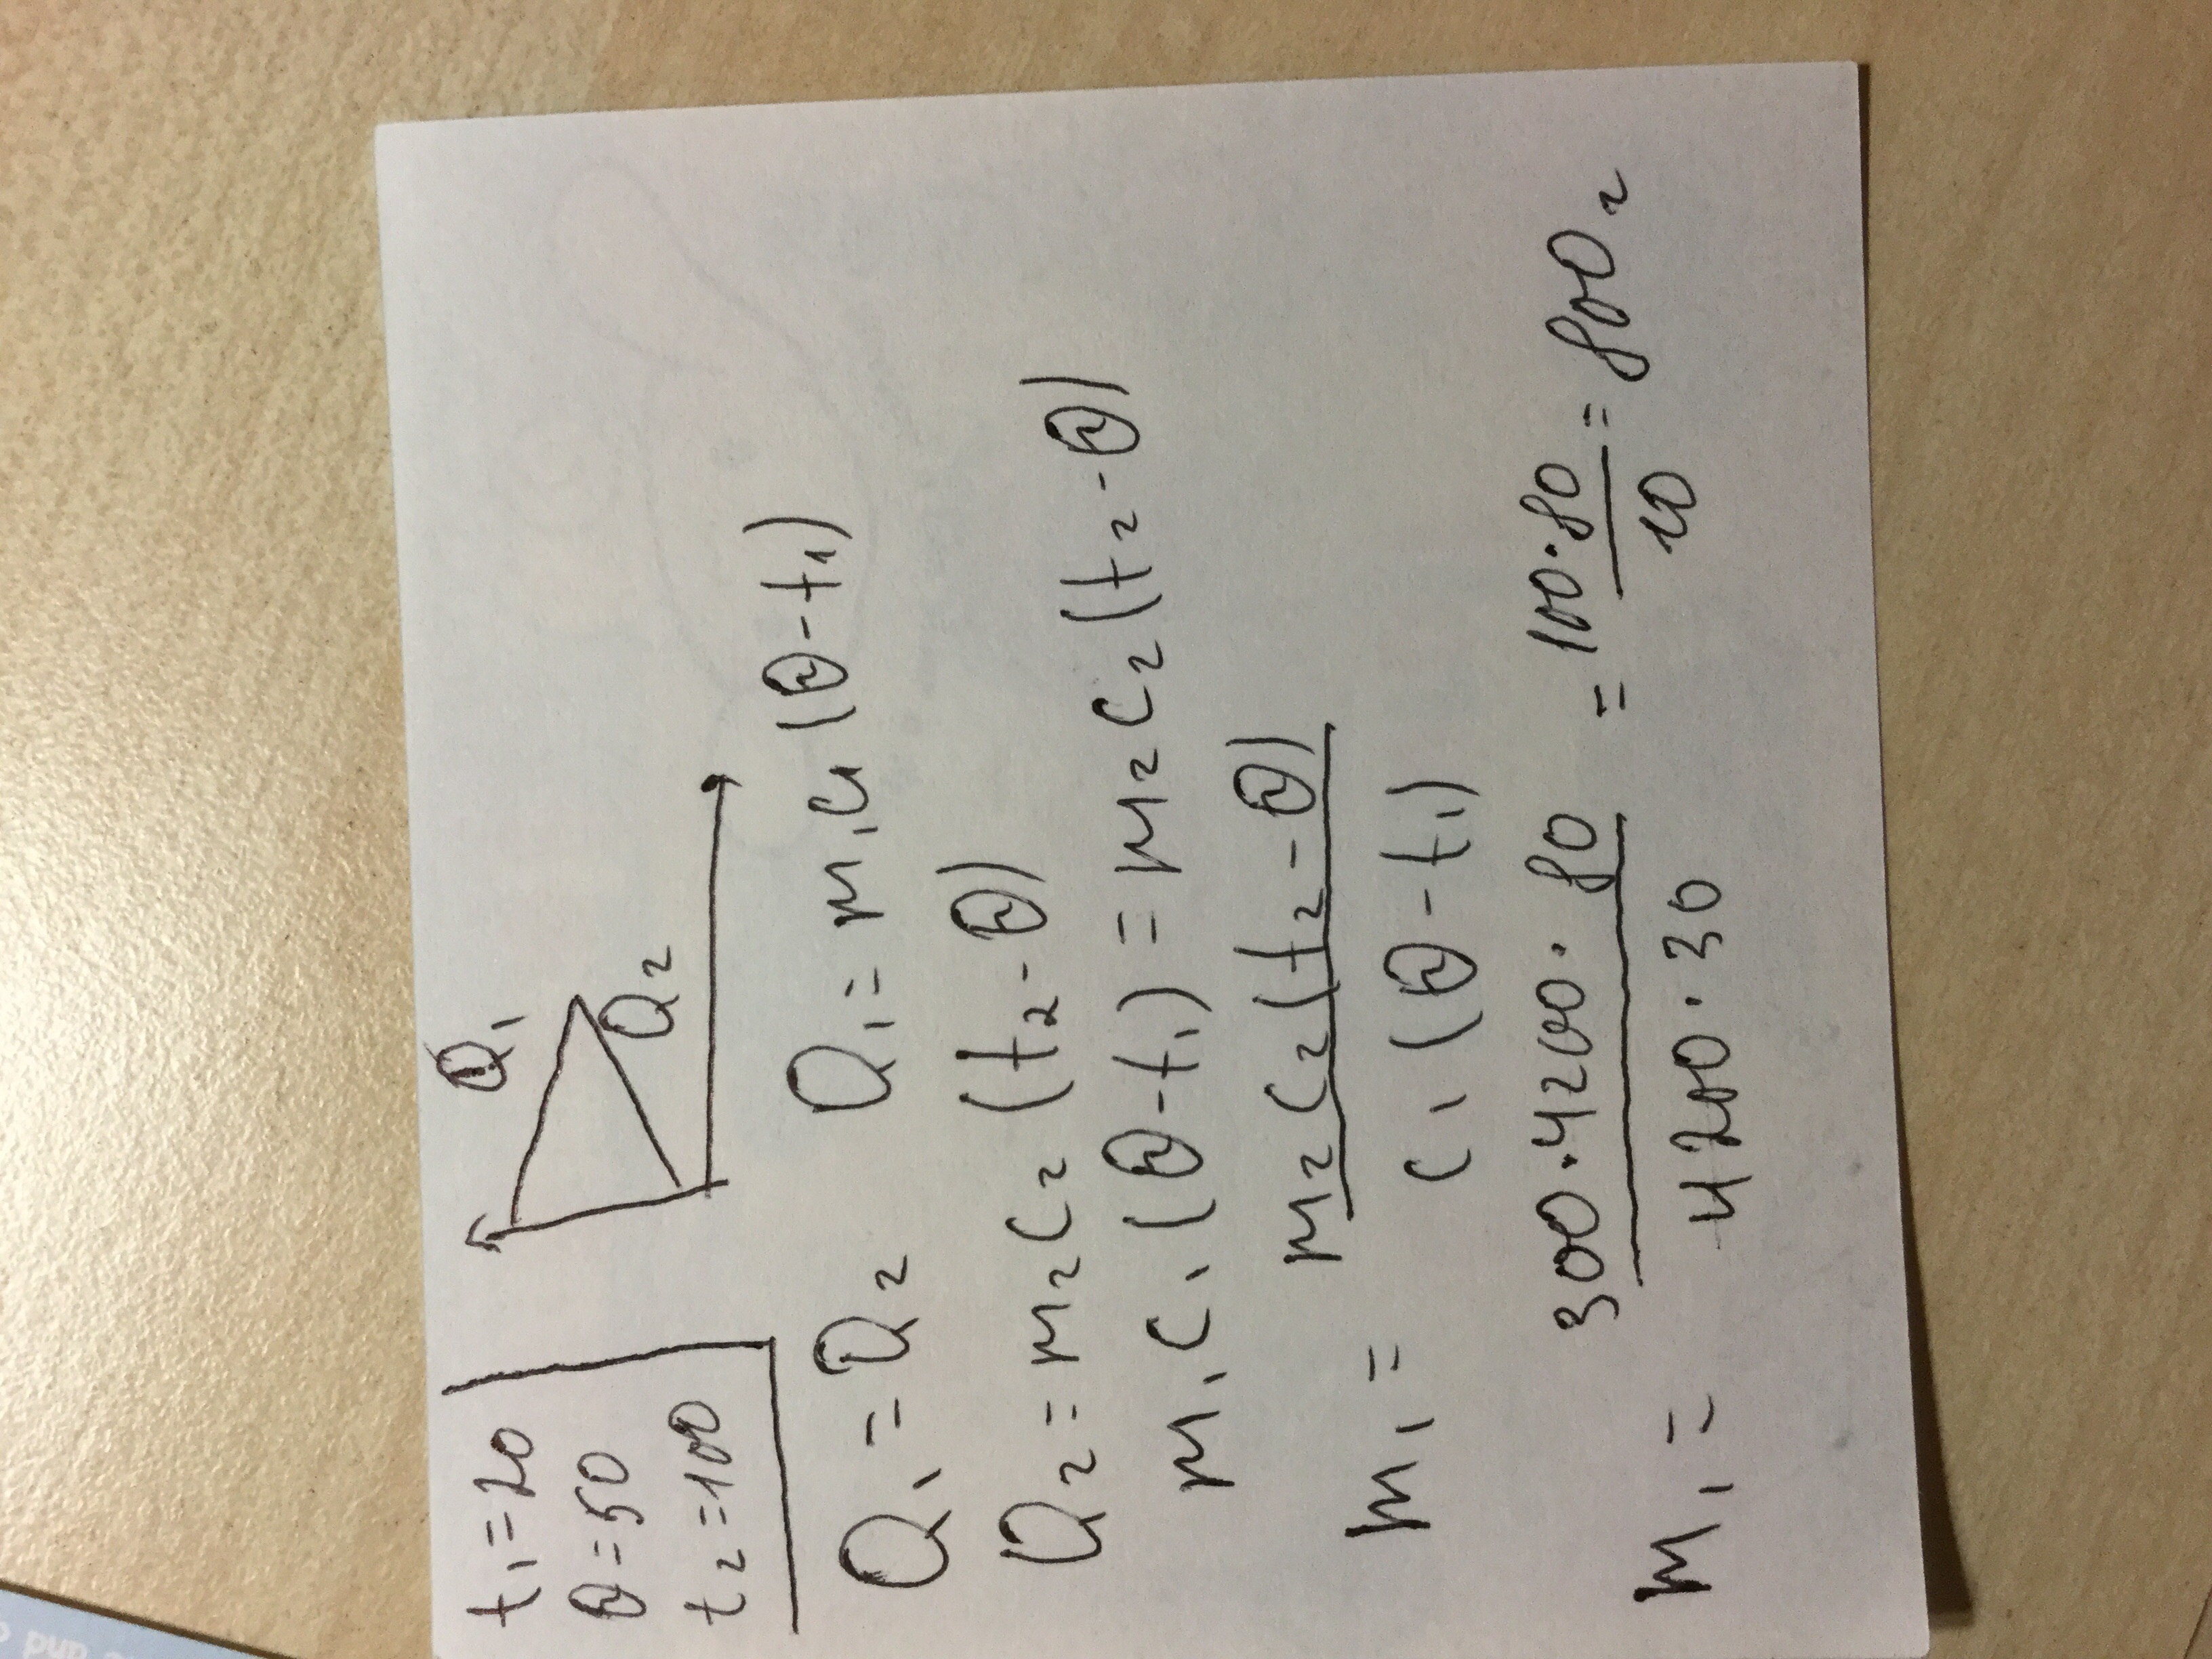 t₁=20
Θ=50
t₂=100
Q₁
Q₂
Q₁=Q₂ Q₁=m₁c₁(Θ-t₁)
Q₂=m₂c₂(t₂-Θ)
m₁c₁(Θ-t₁)=m₂c₂(t₂-Θ)
m₁= m₂c₂(t₂-Θ) / c₁(Θ-t₁)
m₁= 300·4200·80 / 4200·30 = 100·80 / 10 = 800 г